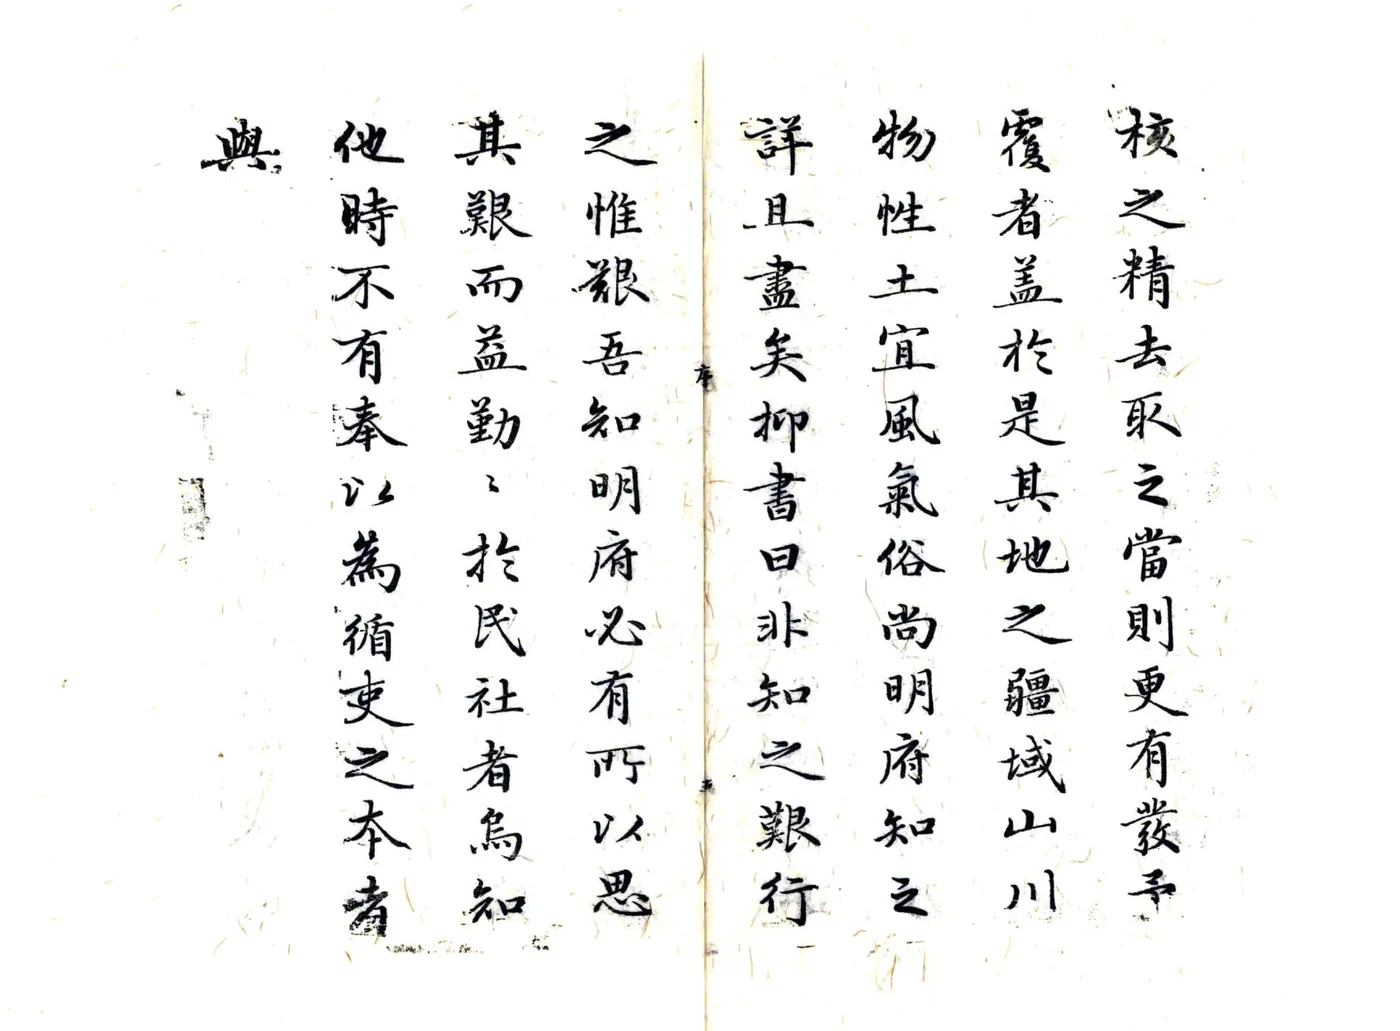 核之精去取之當則更有發予
覆者盖於是其地之疆域山川
物性土宜風氣俗尚明府知之
詳且盡矣抑書曰非知之艱行
序
五
之惟艱吾知明府必有所以思
其艱而益勤〻於民社者烏知
他時不有奉以為循吏之本者
與